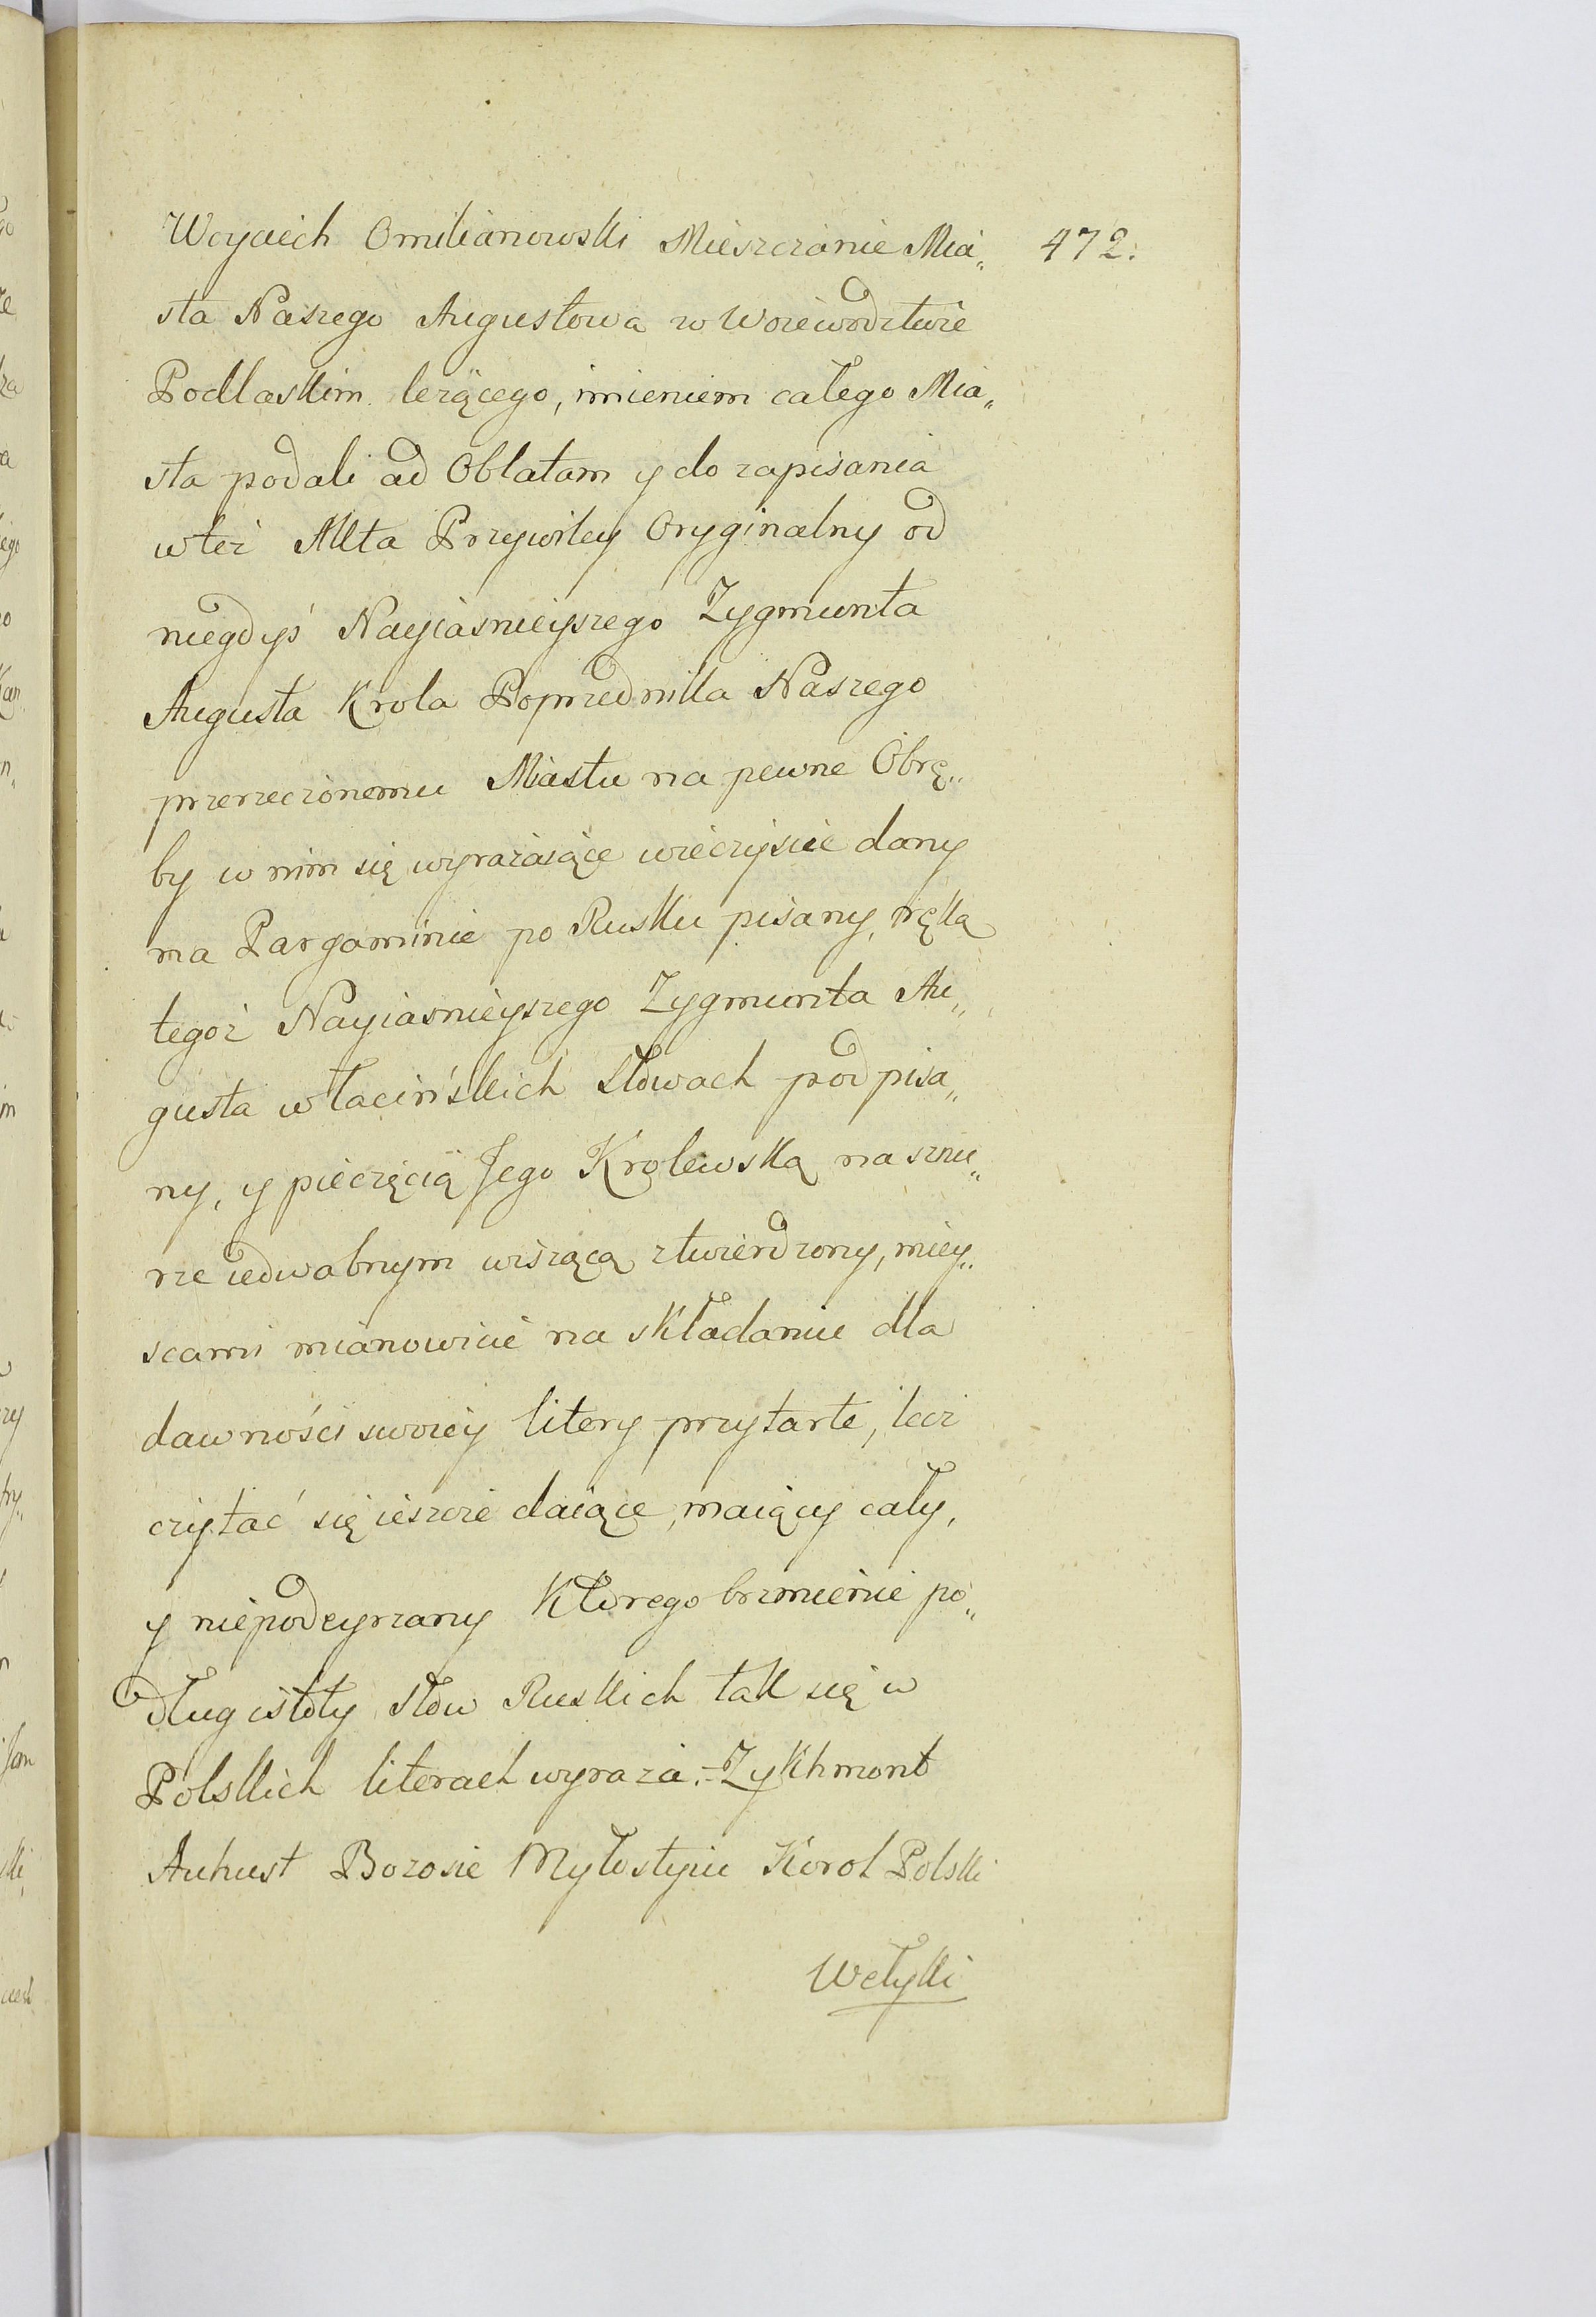 Woyciech Omilianowski Mieszczanie Mia„ 472.
sta Naszego Augustowa w Woiewodztwie
Podlaskim leżącego, imieniem całego Mia„
sta podali ad Oblatam y do zapisania
w też Akta Przywiley Oryginalny od
niegdyś Nayiasnieyszego Zygmunta
Augusta Krola Poprzednika Naszego
przerzeczonemu Miastu na pewne Obrę„
by w nim się wyrażaiące wieczyscie dany
na Pargaminie po Rusku pisany, ręką
tegoż Nayiasnieyszego Zygmunta Au„
gusta w łacińskich słowach podpisa„
ny, y pieczęcią Jego Krolewską na sznu„
rze iedwabnym wiszącą ztwierdzony, miey„
scami mianowicie na składaniu dla
dawności swoiey litery przytarte, lecz
czytać się ieszcze daiące, maiący cały,
y niepodeyrzany Ktorego brzmienie po„
dług istoty słow Ruskich tak się w
Polskich literach wyraża.- Zykhmont
Auhust Bozosie Myłostyiu Korol Polski
Wełyki